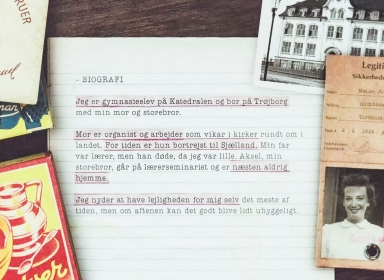 - BIOGRAFI
Jeg er gymnasieelev på Katedralen og bor på Trøjborg
med min mor og storebror.
Mor er organist og arbejder som vikar i kirker rundt om i
landet. For tiden er hun bortrejst til Sjælland. Min far
var lærer, men han døde, da jeg var lille. Aksel, min
storebror, går på lærerseminariet og er næsten aldrig
hjemme.
Jeg nyder at have lejligheden for mig selv det meste af
tiden, men om aftenen kan det godt blive lidt uhyggeligt.
Legiti
Sikkerhed